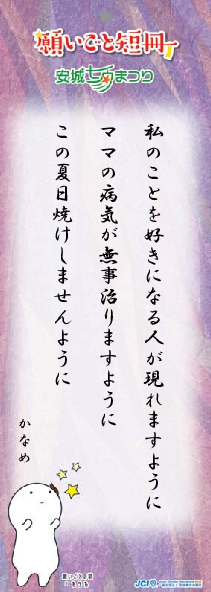 願いごと短冊
安城七夕まつり
私のことを好きになる人が現れますように
ママの病気が無事治りますように
この夏日焼けしませんように
かなめ
JCI